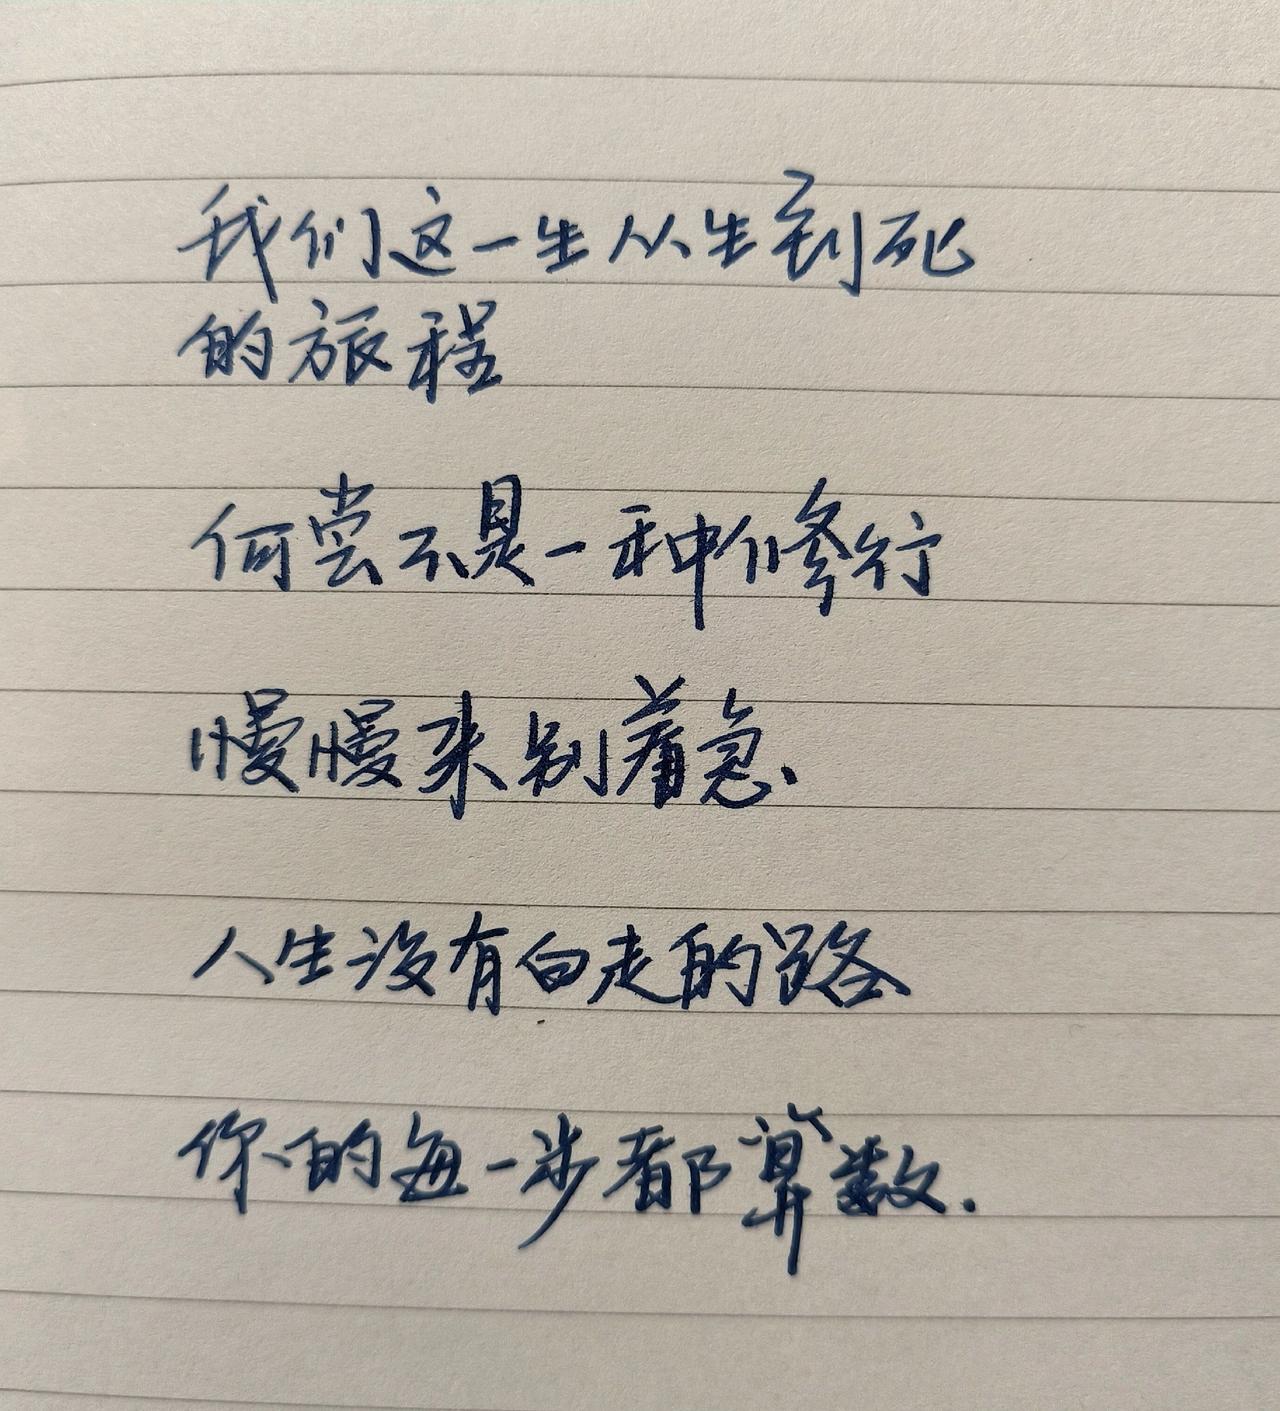 我们这一生从生到死
的旅程
何尝不是一种修行
慢慢来别着急.
人生没有白走的路
你的每一步都算数.